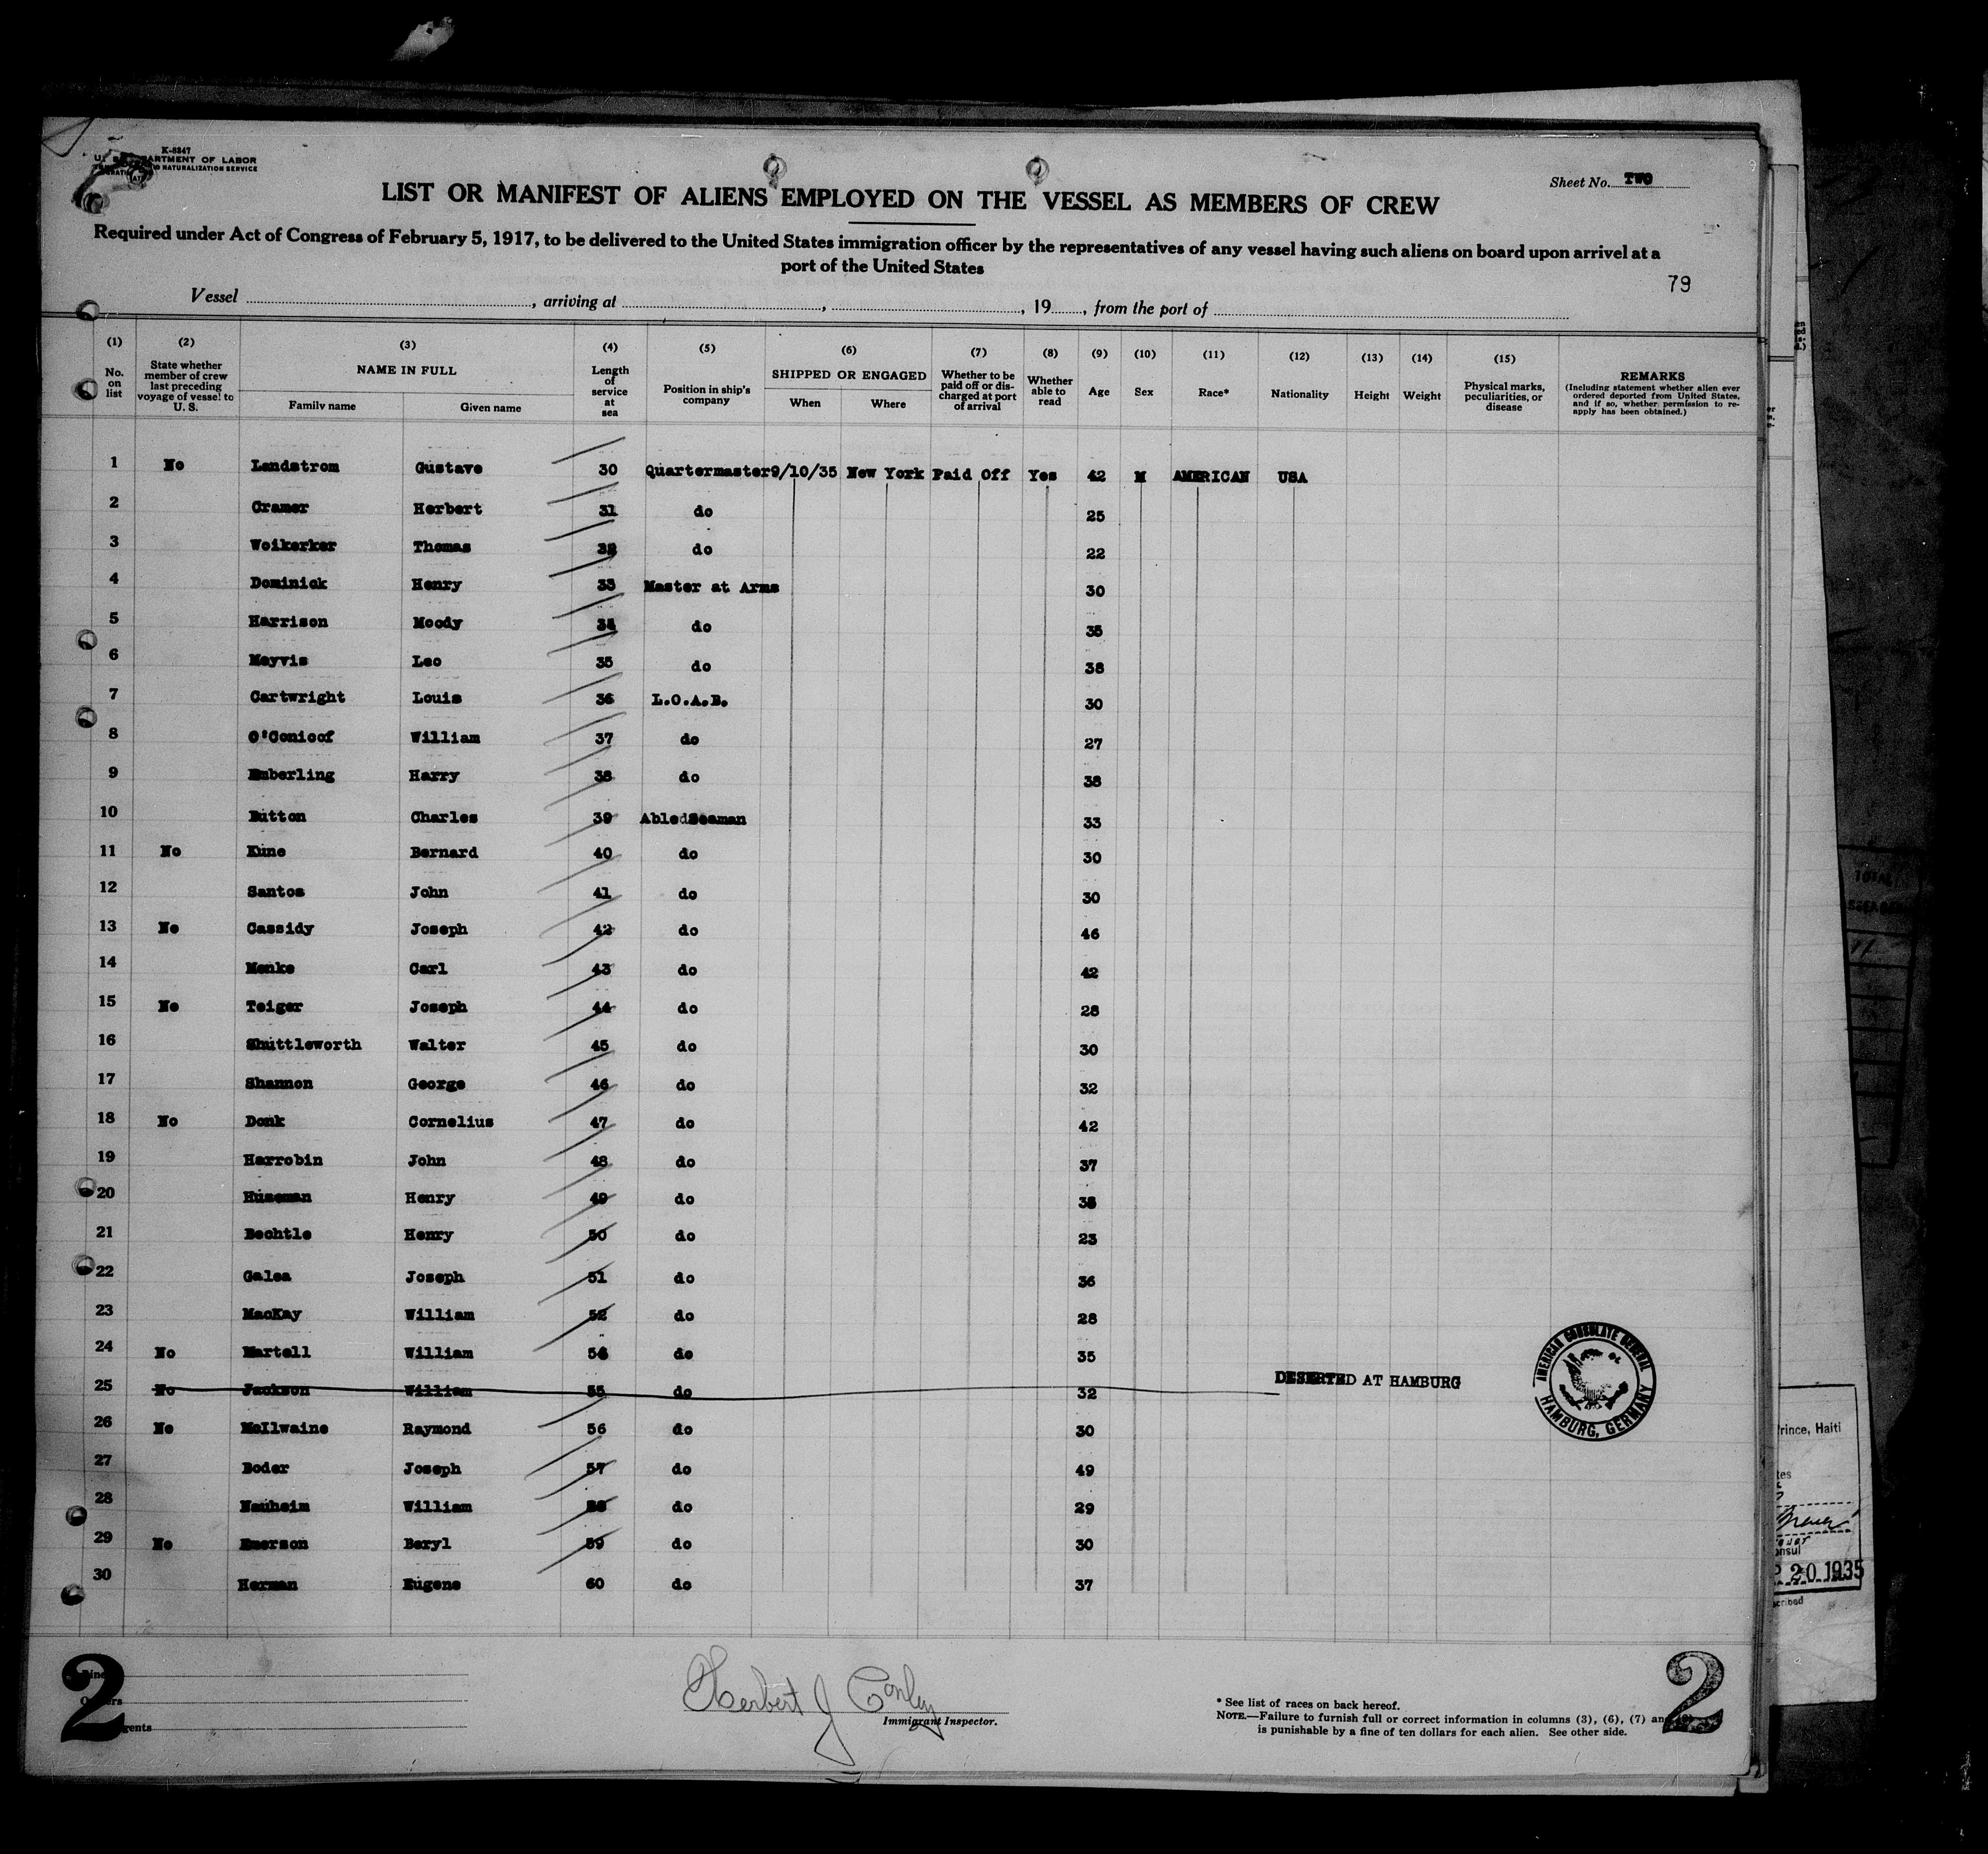 K-8347
U. S. DEPARTMENT OF LABOR
NATURALIZATION SERVICE
Sheet No. TWO
LIST OR MANIFEST OF ALIENS EMPLOYED ON THE VESSEL AS MEMBERS OF CREW
Required under Act of Congress of February 5, 1917, to be delivered to the United States immigration officer by the representatives of any vessel having such aliens on board upon arrival at a
port of the United States
79
Vessel , arriving at , , 19 , from the port of
(1) No. on list (2) State whether member of crew last preceding voyage of vessel to U. S. (3) NAME IN FULL Family name Given name (4) Length of service at sea (5) Position in ship's company (6) SHIPPED OR ENGAGED When Where (7) Whether to be paid off or discharged at port of arrival (8) Whether able to read (9) Age (10) Sex (11) Race* (12) Nationality (13) Height (14) Weight (15) Physical marks, peculiarities, or disease REMARKS (Including statement whether alien ever ordered deported from United States, and if so, whether permission to re-apply has been obtained.)
1 No Landstrom Gustave 30 Quartermaster 9/10/35 New York Paid Off Yes 42 M AMERICAN USA
2 Cramer Herbert 31 do 25
3 Woikerker Thomas 32 do 22
4 Dominick Henry 33 Master at Arms 30
5 Harrison Moody 34 do 35
6 Mayvis Leo 35 do 38
7 Cartwright Louis 36 L.O.A.B. 30
8 O'Conicof William 37 do 27
9 Emberling Harry 38 do 38
10 Button Charles 39 AbledSeaman 33
11 No Kune Bernard 40 do 30
12 Santos John 41 do 30
13 No Cassidy Joseph 42 do 46
14 Menke Carl 43 do 42
15 No Teiger Joseph 44 do 28
16 Shuttleworth Walter 45 do 30
17 Shannon George 46 do 32
18 No Donk Cornelius 47 do 42
19 Harrobin John 48 do 37
20 Huseman Henry 49 do 38
21 Bechtle Henry 50 do 23
22 Galea Joseph 51 do 36
23 MacKay William 52 do 28
24 No Martell William 54 do 35
25 No Jackson William 55 do 32 DESERTED AT HAMBURG
AMERICAN CONSULATE GENERAL
HAMBURG, GERMANY
26 No McIlwaine Raymond 56 do 30
27 Boder Joseph 57 do 49
28 Nauheim William 58 do 29
29 No Emerson Beryl 59 do 30
30 Herman Eugene 60 do 37
2
Herbert J Conley
Immigrant Inspector.
* See list of races on back hereof.
NOTE.—Failure to furnish full or correct information in columns (3), (6), (7) and
is punishable by a fine of ten dollars for each alien. See other side.
2
Prince, Haiti
20 1935